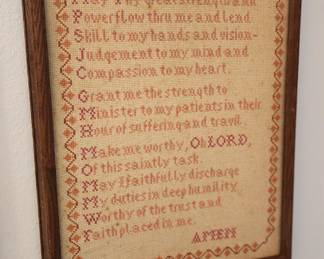 May Thy great strength and
Power flow thru me and lend
Skill to my hands and vision-
Judgement to my mind and
Compassion to my heart.
Grant me the strength to
Minister to my patients in their
Hour of suffering and travil.
Make me worthy, Oh LORD,
Of this saintly task.
May I faithfully discharge
My duties in deep humility
Worthy of the trust and
Faith placed in me.
AMEN